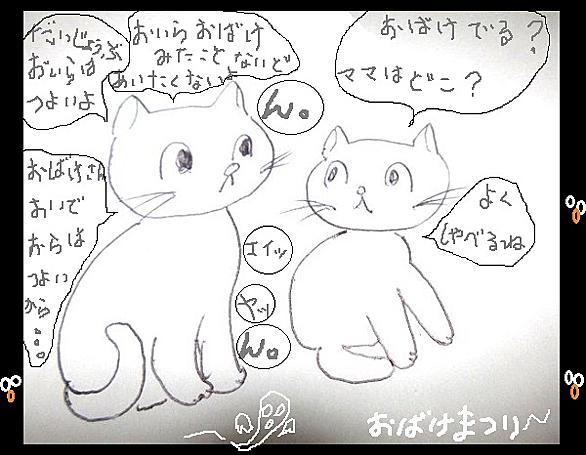 おばけ でる?
ママは どこ?
おいら おばけ
みたこと ないど
あいたくないよ
だいじょうぶ
おいらは
つよいよ
ん。
おばけさん
おいで
おらは
つよい
から...。
エイッ
ヤッ
ん。
よく
しゃべるね
おばけまつり~